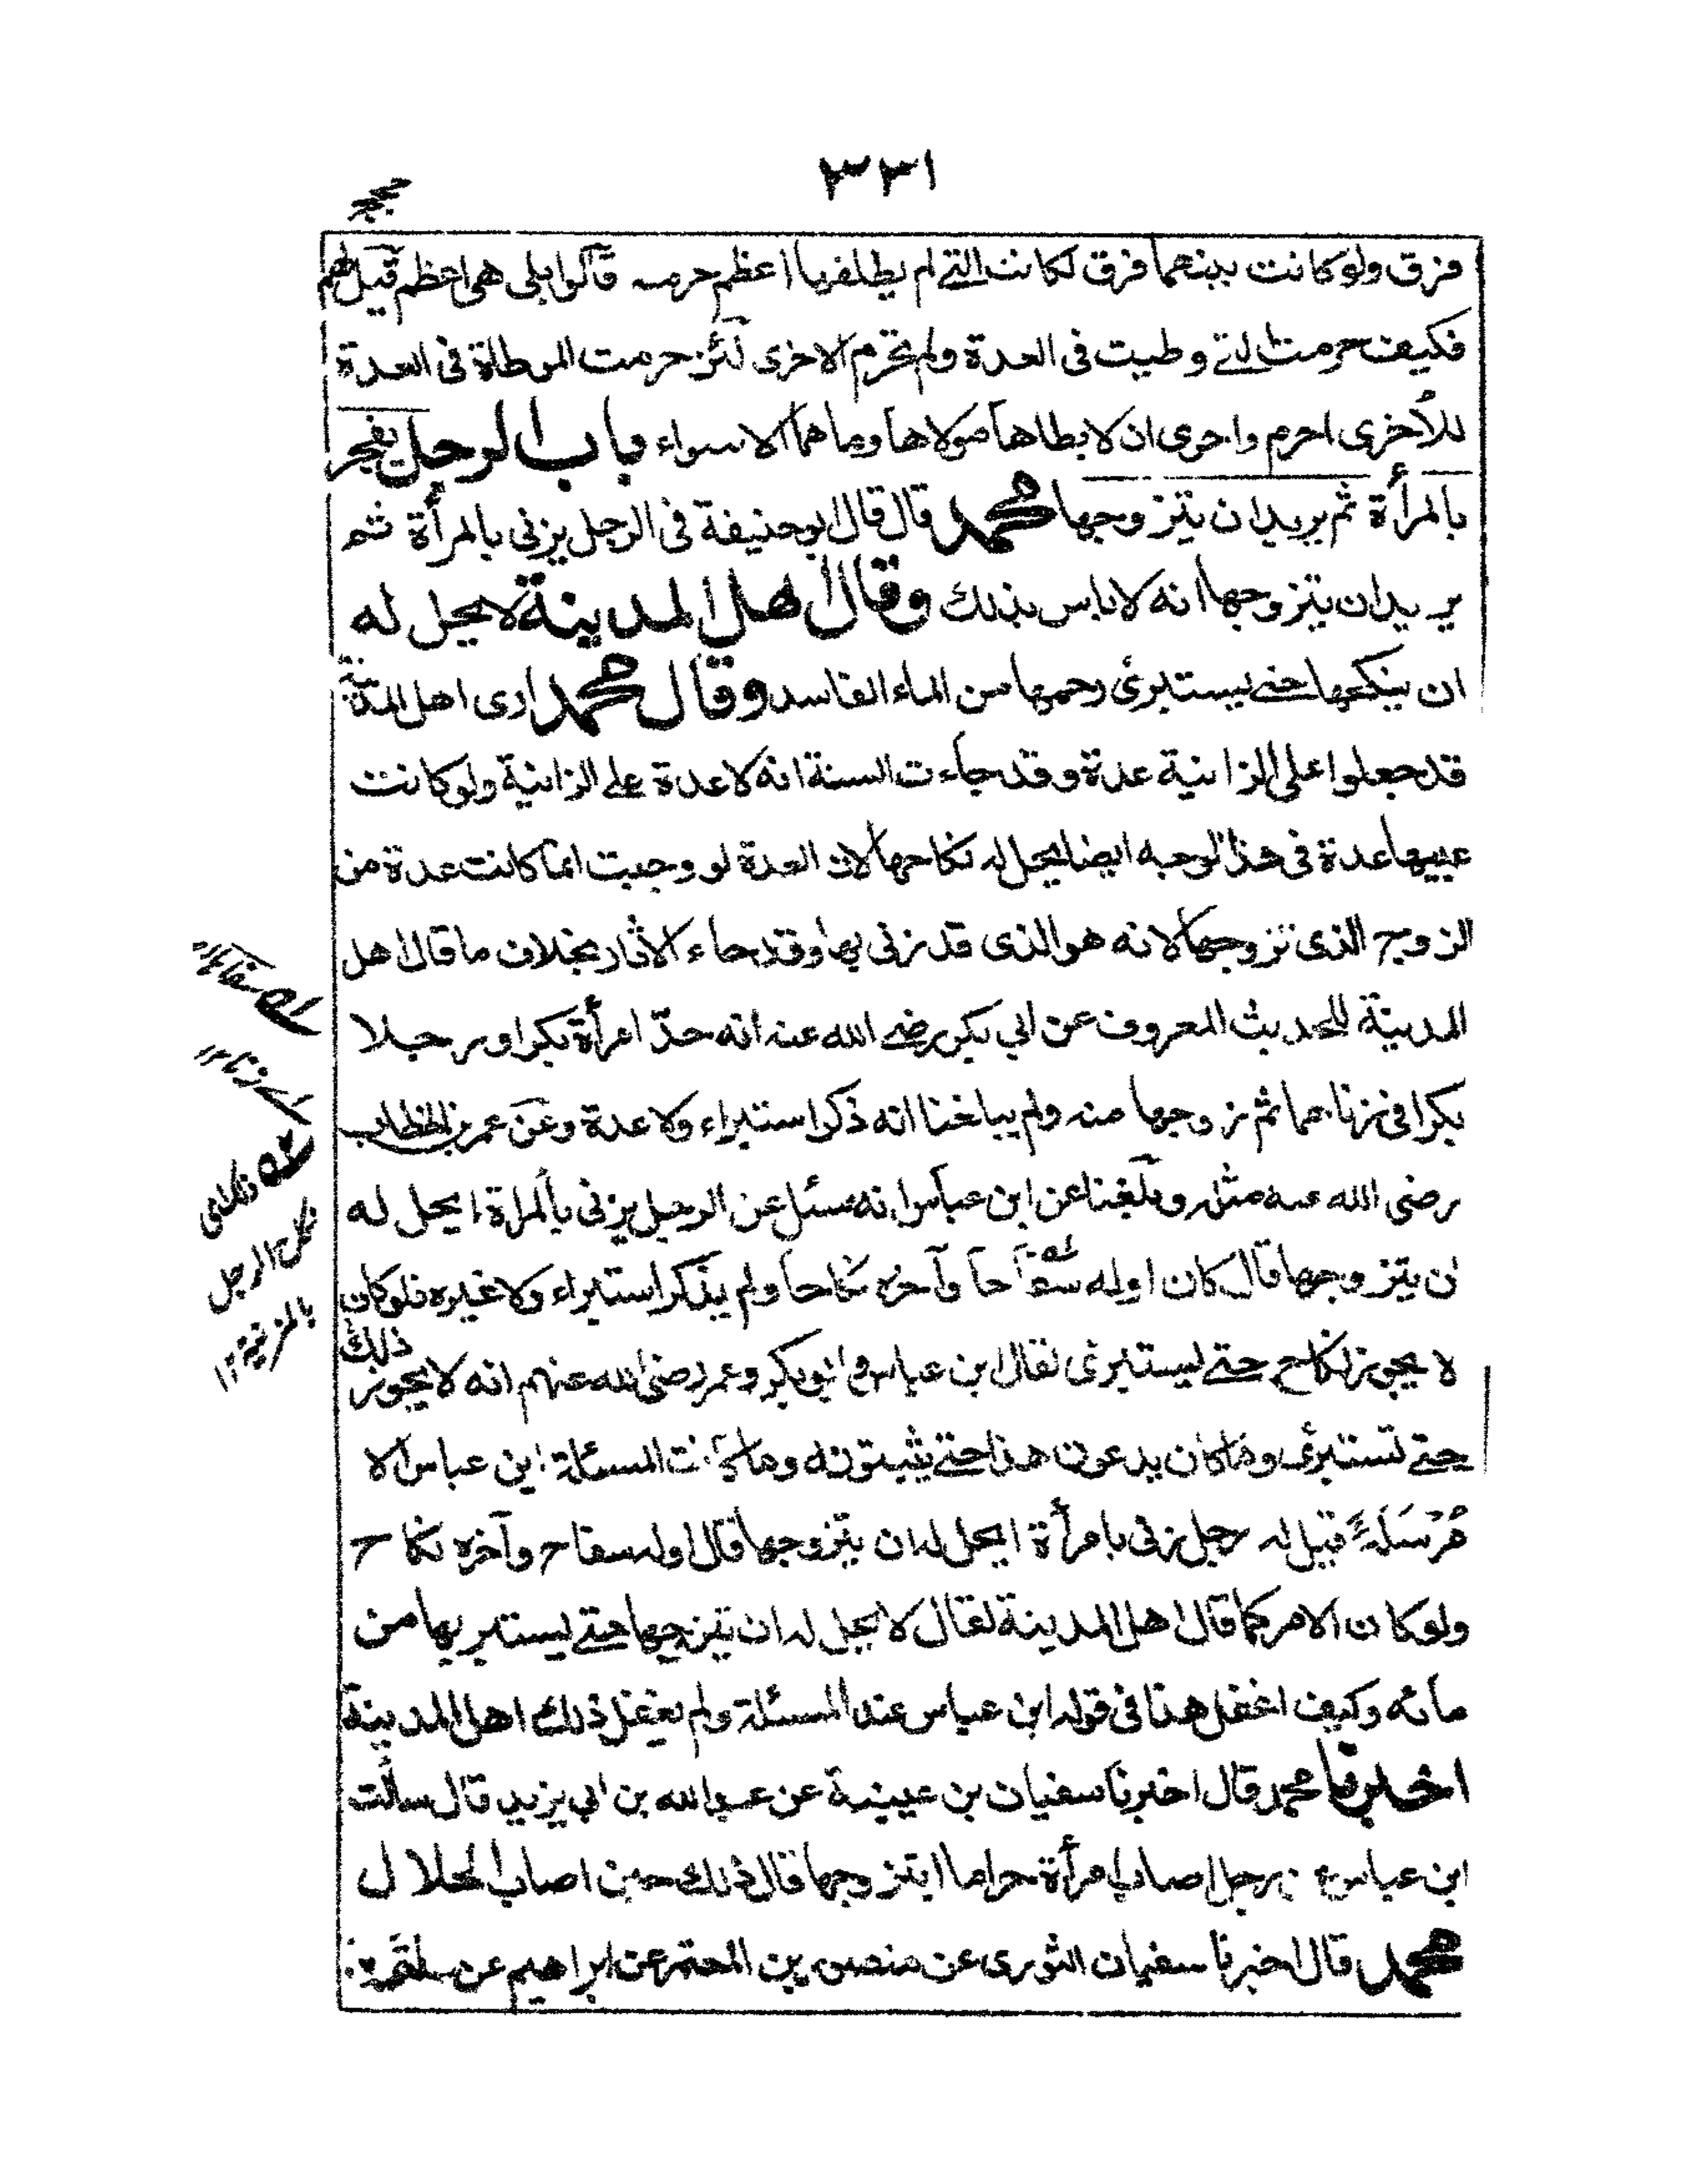 ٣٣١
حجج
فرق ولو كانت بينهما فرق لكانت التي لم يطلقربا اعظم حرمه قالوا بلى هى اعظم قيل لهم
فكيف حرمت التي وطيت فى العدة ولم تحرم الاخرى لئن حرمت الموطاة فى العدة
للأخرى احرم واحرى ان لا يطاها مولاها وما هما الا سواء باب الرجل يفجر
بالمرأة ثم يريد ان يتزوجها محمد قال قال ابو حنيفة فى الرجل يزنى بالمرأة ثم
يريد ان يتزوجها انه لا باس بذلك وقال اهل المدينة لا يحل له
ان ينكحها حتے يستبرئ رحمها من الماء الفاسد وقال محمد ارى اهل المدينة
قد جعلوا على الزانية عدة وقد جاءت السنة انه لا عدة على الزانية ولو كانت
عييها عدة فى هذا الوجه ايضا ليحل له نكاحها لان العدة لو وجبت انما كانت عدة من
الزوج الذى تزوجها لانه هو الذى قد زنى بها وقد جاء الاثار بخلاف ما قال اهل
المدينة للحديث المعروف عن ابي بكر رضے الله عنه انه حدّ امرأة بكرا ورجلا
بكرا فى زناهما ثم زوجها منه ولم يبلغنا انه ذكر استبراء ولا عدة وعن عمر بن الخطاب
رضى الله عنه مثله وبلغنا عن ابن عباس انه سئل عن الرجل يزنى بالمراة ايحل له
ان يتزوجها قال كان اوله سفاحا وآخره نكاحا ولم يذكر استبراء ولا غيره فلو كان ذلك
لا يجوز نكاح حتے ليستبرئ لقال ابن عباس وابو بكر وعمر رضى الله عنهم انه لا يجوز
حتے تستبرئ وما كان يدعون هذا حتے يثبتونه وما كانت المسئلة ابن عباس الا
مُرْسَلَةً قيل له رجل زنى بامرأة ايحل له ان يتزوجها قال اوله سفاح وآخره نكاح
ولو كان الامر كما قال اهل المدينة لقال لا يحل له ان يتزوجها حتے يستبريها من
مائه وكيف اغفل هذا فى قوله ابن عباس عند المسئلة ولم يغفل ذلك اهل المدينة
اخبرنا محمد قال اخبرنا سفيان بن عيينة عن عبيد الله بن ابي يزيد قال سالت
ابن عباس عن رجل اصاب امرأة حراما ايتزوجها قال ذلك حين اصاب الحلال
محمد قال اخبرنا سفيان الثورى عن منصور بن المعتمر عن ابراهيم عن علقمة
نكاح الرجل
بالمزنية ١٢